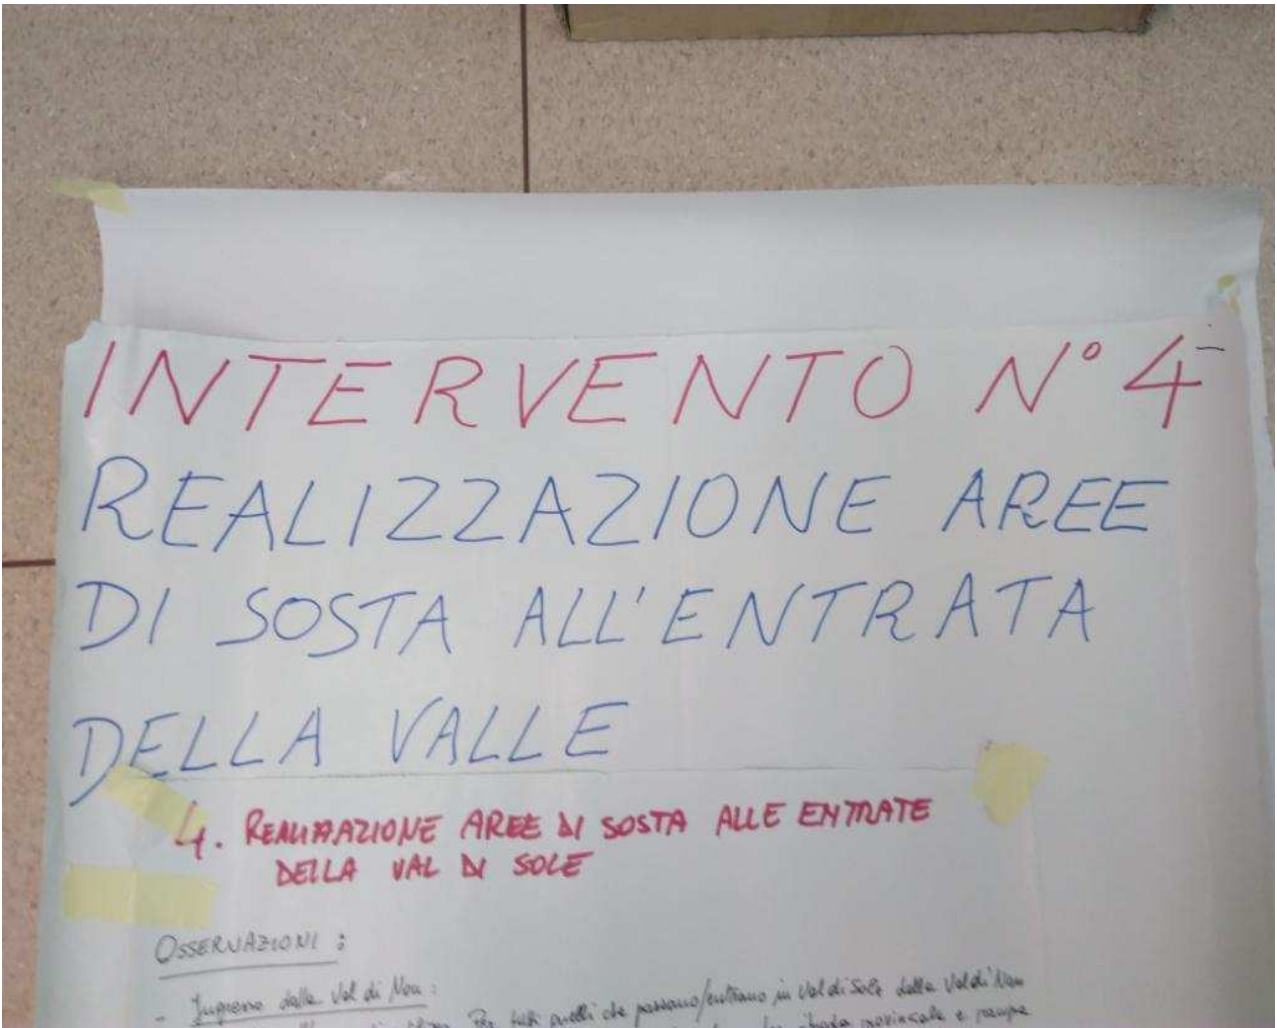 INTERVENTO N° 4
REALIZZAZIONE AREE
DI SOSTA ALL'ENTRATA
DELLA VALLE
4. REALIZZAZIONE AREE DI SOSTA ALLE ENTRATE
DELLA VAL DI SOLE
OSSERVAZIONI :
- Ingresso dalla Val di Non :
Per tutti quelli che passano/entrano in Val di Sole dalla Val di Non
strada provinciale e